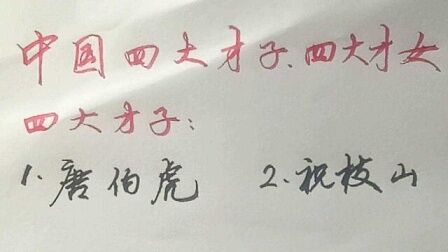 中国四大才子、四大才女
四大才子：
1.唐伯虎 2.祝枝山